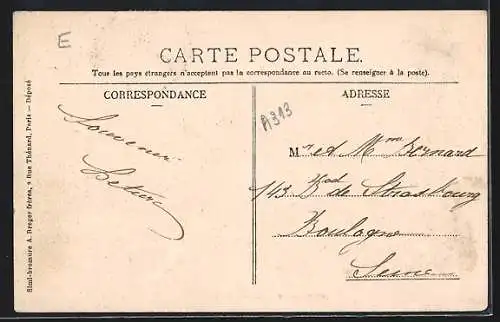 E
CARTE POSTALE.
Tous les pays étrangers n'acceptent pas la correspondance au recto. (Se renseigner à la poste).
CORRESPONDANCE
ADRESSE
A313
Souvenir
Mr et Mme Bernard
143 Bvd de Strasbourg
Boulogne
Seine
Simi-bromure A. Breger frères, 9 Rue Thénard, Paris — Déposé